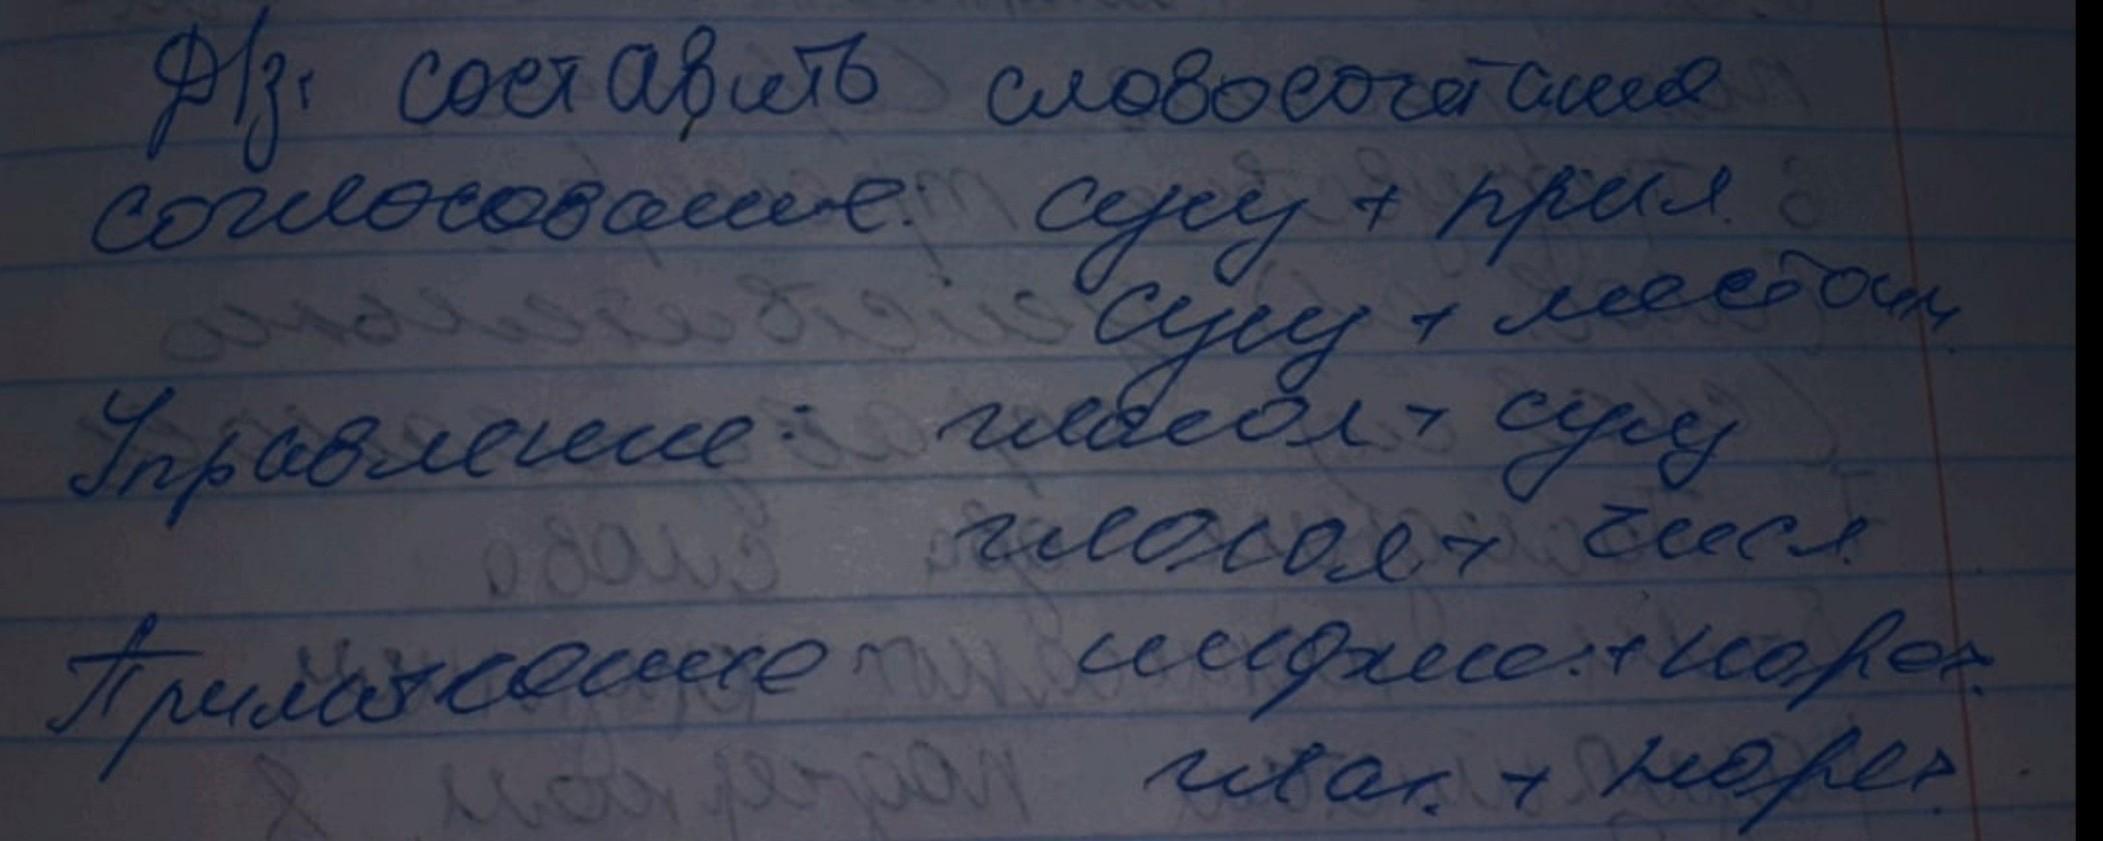 Д/з: составить словосочетания
согласование: сущ + прил.
сущ + местоим.
Управление: глагол + сущ
глагол + числ.
Примыкание инфин. + нареч.
глаг. + нареч.